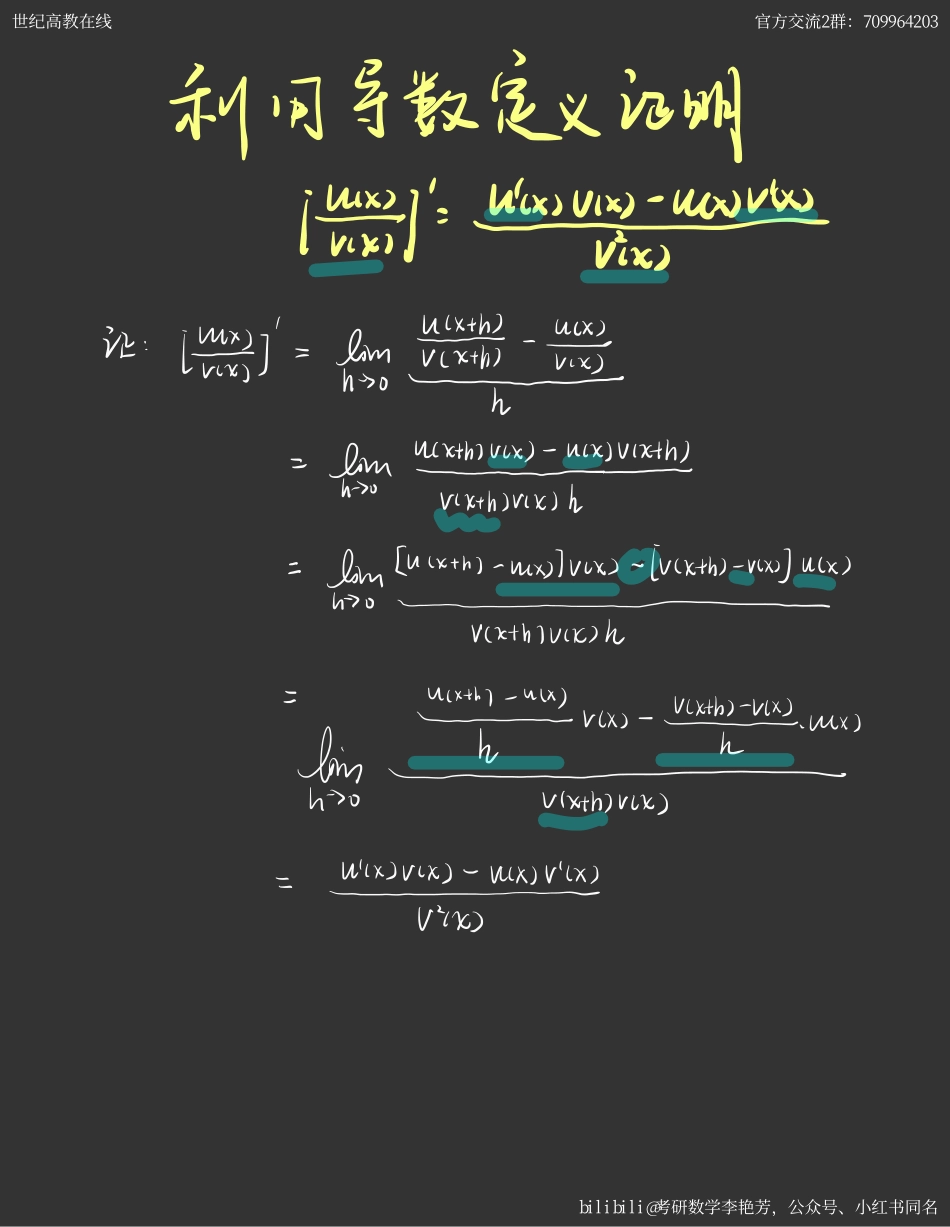 世纪高教在线
官方交流2群：709964203
利用导数定义证明
[u(x)/v(x)]' = (u'(x)v(x) - u(x)v'(x)) / v²(x)
证： [u(x)/v(x)]' = lim h→0 (u(x+h)/v(x+h) - u(x)/v(x)) / h
= lim h→0 (u(x+h)v(x) - u(x)v(x+h)) / (v(x+h)v(x)h)
= lim h→0 ([u(x+h) - u(x)]v(x) - [v(x+h) - v(x)]u(x)) / (v(x+h)v(x)h)
= lim h→0 ((u(x+h) - u(x))/h v(x) - (v(x+h) - v(x))/h · u(x)) / (v(x+h)v(x))
= (u'(x)v(x) - u(x)v'(x)) / v²(x)
bilibili@考研数学李艳芳，公众号、小红书同名